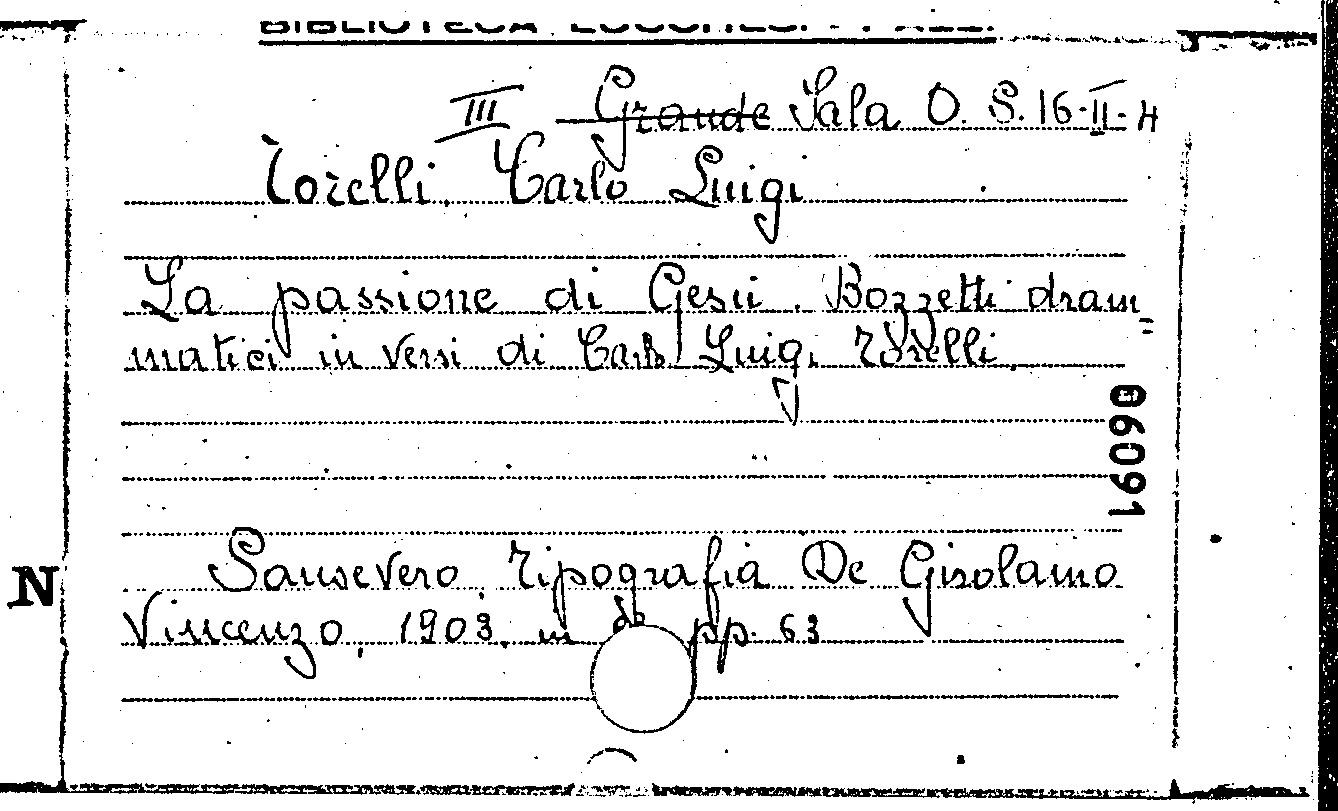 BIBLIOTECA LUCCHESI - PALLI
III Grande Sala O. S. 16-II-4
Torelli, Carlo Luigi
La passione di Gesù. Bozzetti dram=
matici in versi di Carlo Luigi Torelli.
06091
Sansevero, Tipografia De Girolamo
N
Vincenzo, 1903, in 8° pp. 63